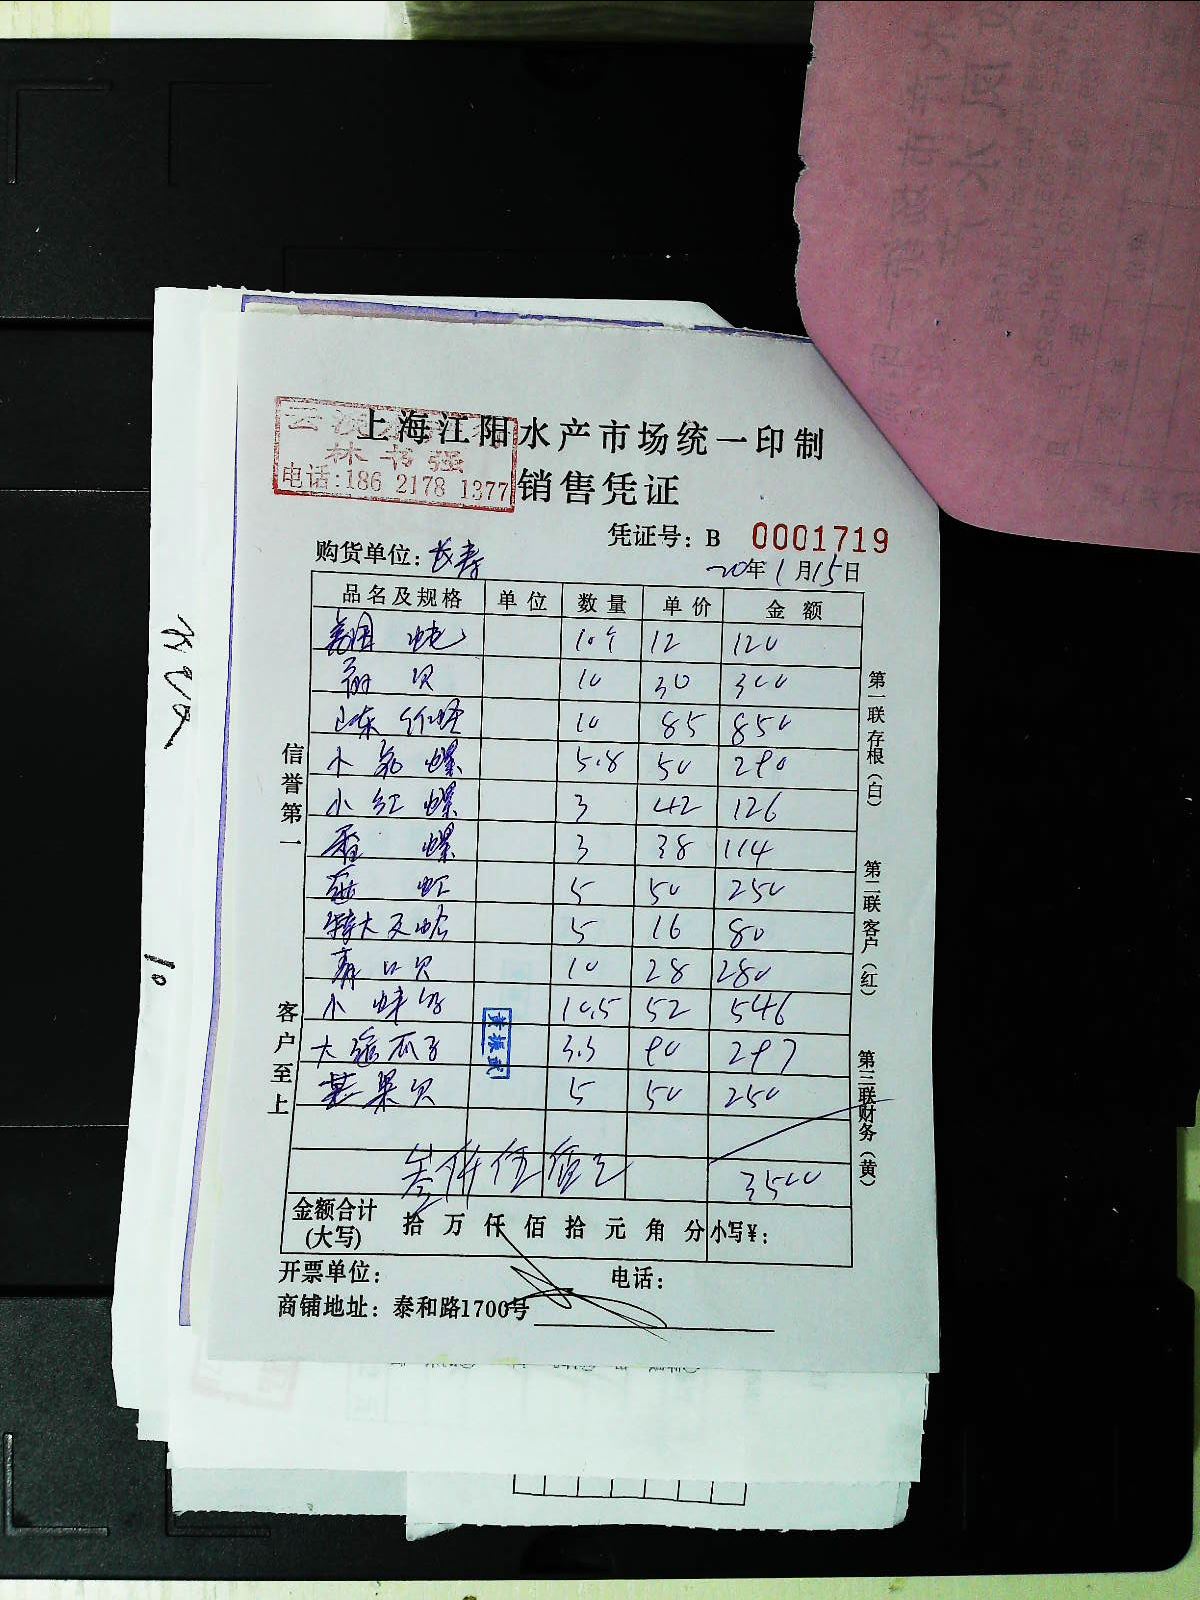 上海江阳水产市场统一印制
林书强
电话:186 2178 1377
销售凭证
凭证号: B 0001719
购货单位: 长寿
20年1月15日
品名及规格 单位 数量 单价 金额
美国 10个 12 120
贝 10 30 300
山东 10 85 850
小 螺 5.8 50 290
小红螺 3 42 126
香螺 3 38 114
5 50 250
特大文蛤 5 16 80
青口贝 10 28 280
小 10.5 52 546
大 瓜子 3.3 90 297
苹果贝 5 50 250
叁仟伍佰元 3500
金额合计(大写) 拾 万 仟 佰 拾 元 角 分 小写¥:
开票单位: 电话:
商铺地址: 泰和路1700号
信誉第一
客户至上
第一联存根(白)
第二联客户(红)
第三联财务(黄)
10